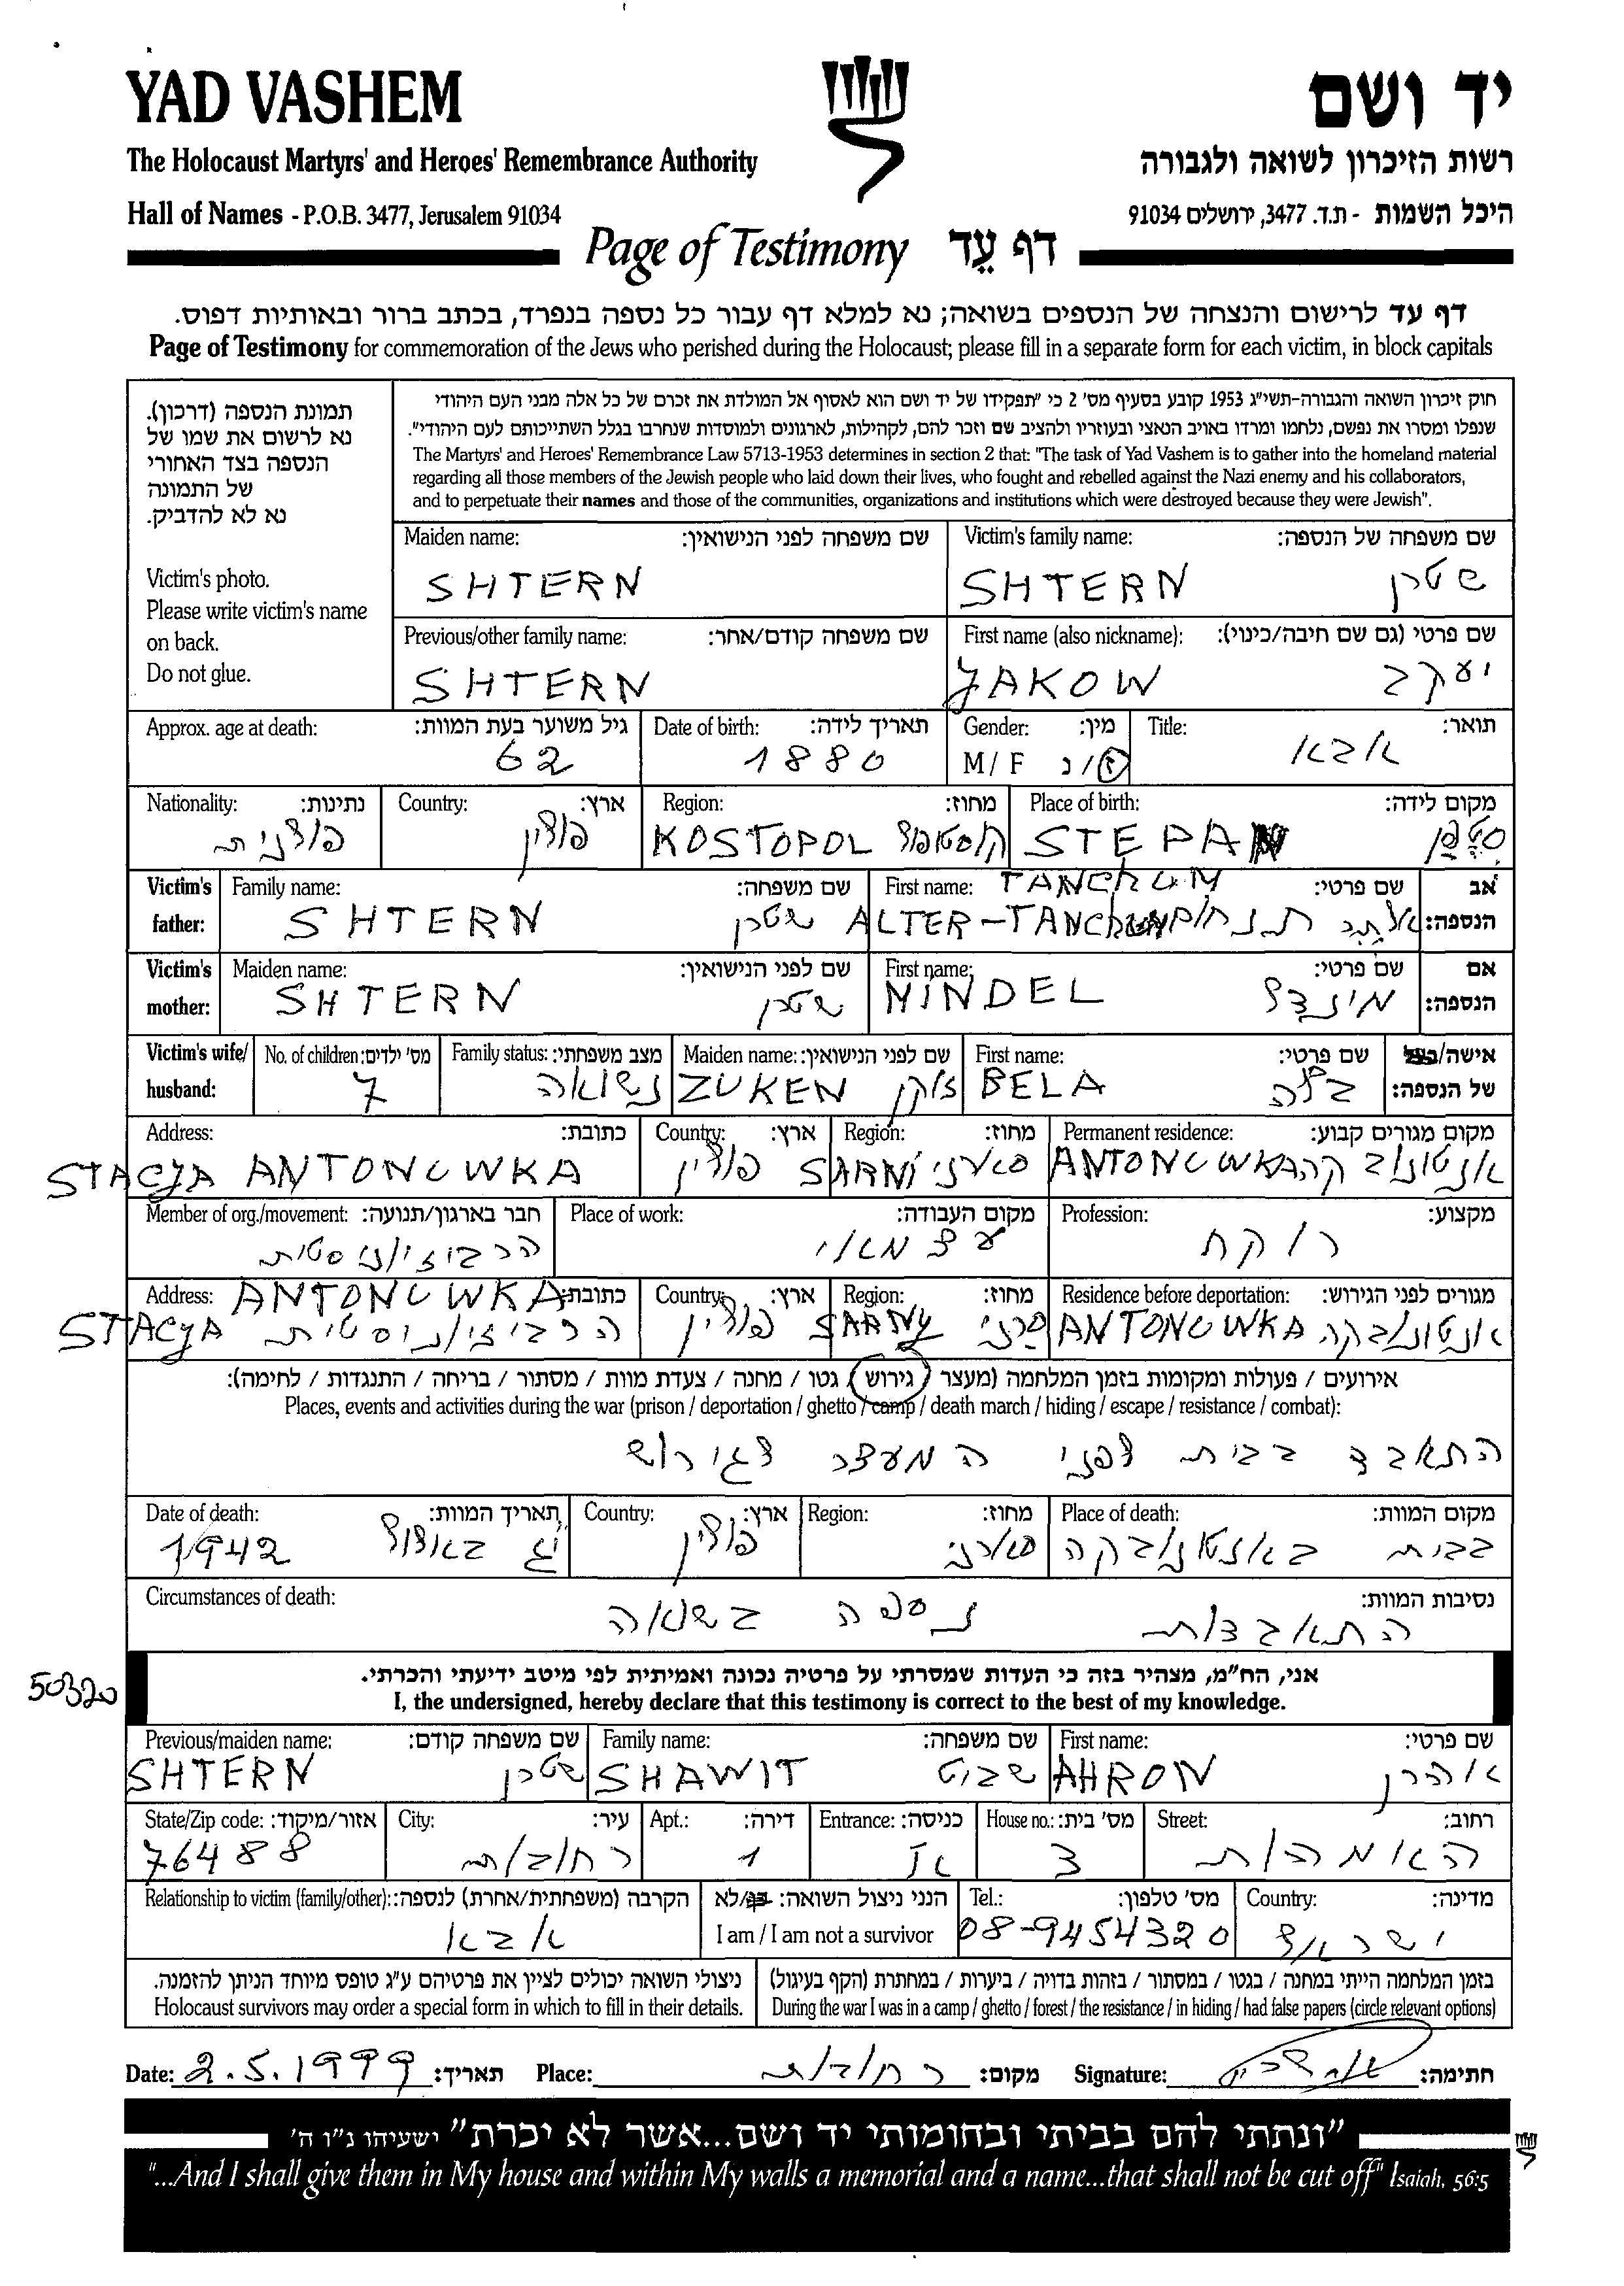 YAD VASHEM
יד ושם
The Holocaust Martyrs' and Heroes' Remembrance Authority
רשות הזיכרון לשואה ולגבורה
Hall of Names - P.O.B. 3477, Jerusalem 91034
היכל השמות - ת.ד. 3477, ירושלים 91034
Page of Testimony דף עֵד
דף עד לרישום והנצחה של הנספים בשואה; נא למלא דף עבור כל נספה בנפרד, בכתב ברור ובאותיות דפוס.
Page of Testimony for commemoration of the Jews who perished during the Holocaust; please fill in a separate form for each victim, in block capitals
תמונת הנספה (דרכון).
נא לרשום את שמו של
הנספה בצד האחורי
של התמונה
נא לא להדביק.
Victim's photo.
Please write victim's name
on back.
Do not glue.
חוק זיכרון השואה והגבורה-תשי"ג 1953 קובע בסעיף מס' 2 כי "תפקידו של יד ושם הוא לאסוף אל המולדת את זכרם של כל אלה מבני העם היהודי
שנפלו ומסרו את נפשם, נלחמו ומרדו באויב הנאצי ובעוזריו ולהציב שם וזכר להם, לקהילות, לארגונים ולמוסדות שנחרבו בגלל השתייכותם לעם היהודי".
The Martyrs' and Heroes' Remembrance Law 5713-1953 determines in section 2 that: "The task of Yad Vashem is to gather into the homeland material
regarding all those members of the Jewish people who laid down their lives, who fought and rebelled against the Nazi enemy and his collaborators,
and to perpetuate their names and those of the communities, organizations and institutions which were destroyed because they were Jewish".
Maiden name: שם משפחה לפני הנישואין: Victim's family name: שם משפחה של הנספה:
SHTERN SHTERN שטרן
Previous/other family name: שם משפחה קודם/אחר: First name (also nickname): שם פרטי (גם שם חיבה/כינוי):
SHTERN JAKOW יעקב
Approx. age at death: גיל משוער בעת המוות: Date of birth: תאריך לידה: Gender: מין: Title: תואר:
62 1880 M/F ז/נ אבא
Nationality: נתינות: Country: ארץ: Region: מחוז: Place of birth: מקום לידה:
פולנית פולין KOSTOPOL קוסטופול STEPAN סטפן
Victim's father: Family name: שם משפחה: First name: TANCHUM שם פרטי: אב הנספה:
SHTERN שטרן ALTER-TANCHUM אלתר תנחום
Victim's mother: Maiden name: שם לפני הנישואין: First name: שם פרטי: אם הנספה:
SHTERN שטרן MINDEL מינדל
Victim's wife/ husband: No. of children: מס' ילדים: Family status: מצב משפחתי: Maiden name: שם לפני הנישואין: First name: שם פרטי: אישה/בעל של הנספה:
7 נשואה ZUKEN זוקן BELA בלה
Address: כתובת: Country: ארץ: Region: מחוז: Permanent residence: מקום מגורים קבוע:
STACJA ANTONUWKA פולין SARNI סארני ANTONUWKA אנטונובקה
Member of org./movement: חבר בארגון/תנועה: Place of work: מקום העבודה: Profession: מקצוע:
הרביזיוניסטית עצמאי רוקח
Address: ANTONUWKA כתובת: Country: ארץ: Region: מחוז: Residence before deportation: מגורים לפני הגירוש:
STACJA הרביזיוניסטית פולין SARNY סרני ANTONUWKA אנטונובקה
אירועים / פעולות ומקומות בזמן המלחמה (מעצר / גירוש / גטו / מחנה / צעדת מוות / מסתור / בריחה / התנגדות / לחימה):
Places, events and activities during the war (prison / deportation / ghetto / camp / death march / hiding / escape / resistance / combat):
התאבד בבית לפני המעצר לגירוש
Date of death: תאריך המוות: Country: ארץ: Region: מחוז: Place of death: מקום המוות:
1942 יג באלול פולין סארני בבית באנטונובקה
Circumstances of death: נסיבות המוות:
נספה בשואה
התאבדות
אני, הח"מ, מצהיר בזה כי העדות שמסרתי על פרטיה נכונה ואמיתית לפי מיטב ידיעתי והכרתי.
50320
I, the undersigned, hereby declare that this testimony is correct to the best of my knowledge.
Previous/maiden name: שם משפחה קודם: Family name: שם משפחה: First name: שם פרטי:
SHTERN שטרן SHAWIT שביט AHRON אהרן
State/Zip code: אזור/מיקוד: City: עיר: Apt.: דירה: Entrance: כניסה: House no.: מס' בית: Street: רחוב:
76488 רחובות 1 3 האמהות
Relationship to victim (family/other): הקרבה (משפחתית/אחרת) לנספה: הנני ניצול השואה: כן/לא Tel.: מס' טלפון: Country: מדינה:
אבא I am / I am not a survivor 08-9454320 ישראל
ניצולי השואה יכולים לציין את פרטיהם ע"ג טופס מיוחד הניתן להזמנה.
Holocaust survivors may order a special form in which to fill in their details.
בזמן המלחמה הייתי במחנה / בגטו / במסתור / בזהות בדויה / ביערות / במחתרת (הקף בעיגול)
During the war I was in a camp / ghetto / forest / the resistance / in hiding / had false papers (circle relevant options)
Date: 2.5.1999 תאריך: Place: רחובות מקום: Signature: חתימה:
"ונתתי להם בביתי ובחומותי יד ושם...אשר לא יכרת" ישעיהו נ"ו ה'
"...And I shall give them in My house and within My walls a memorial and a name...that shall not be cut off" Isaiah, 56:5